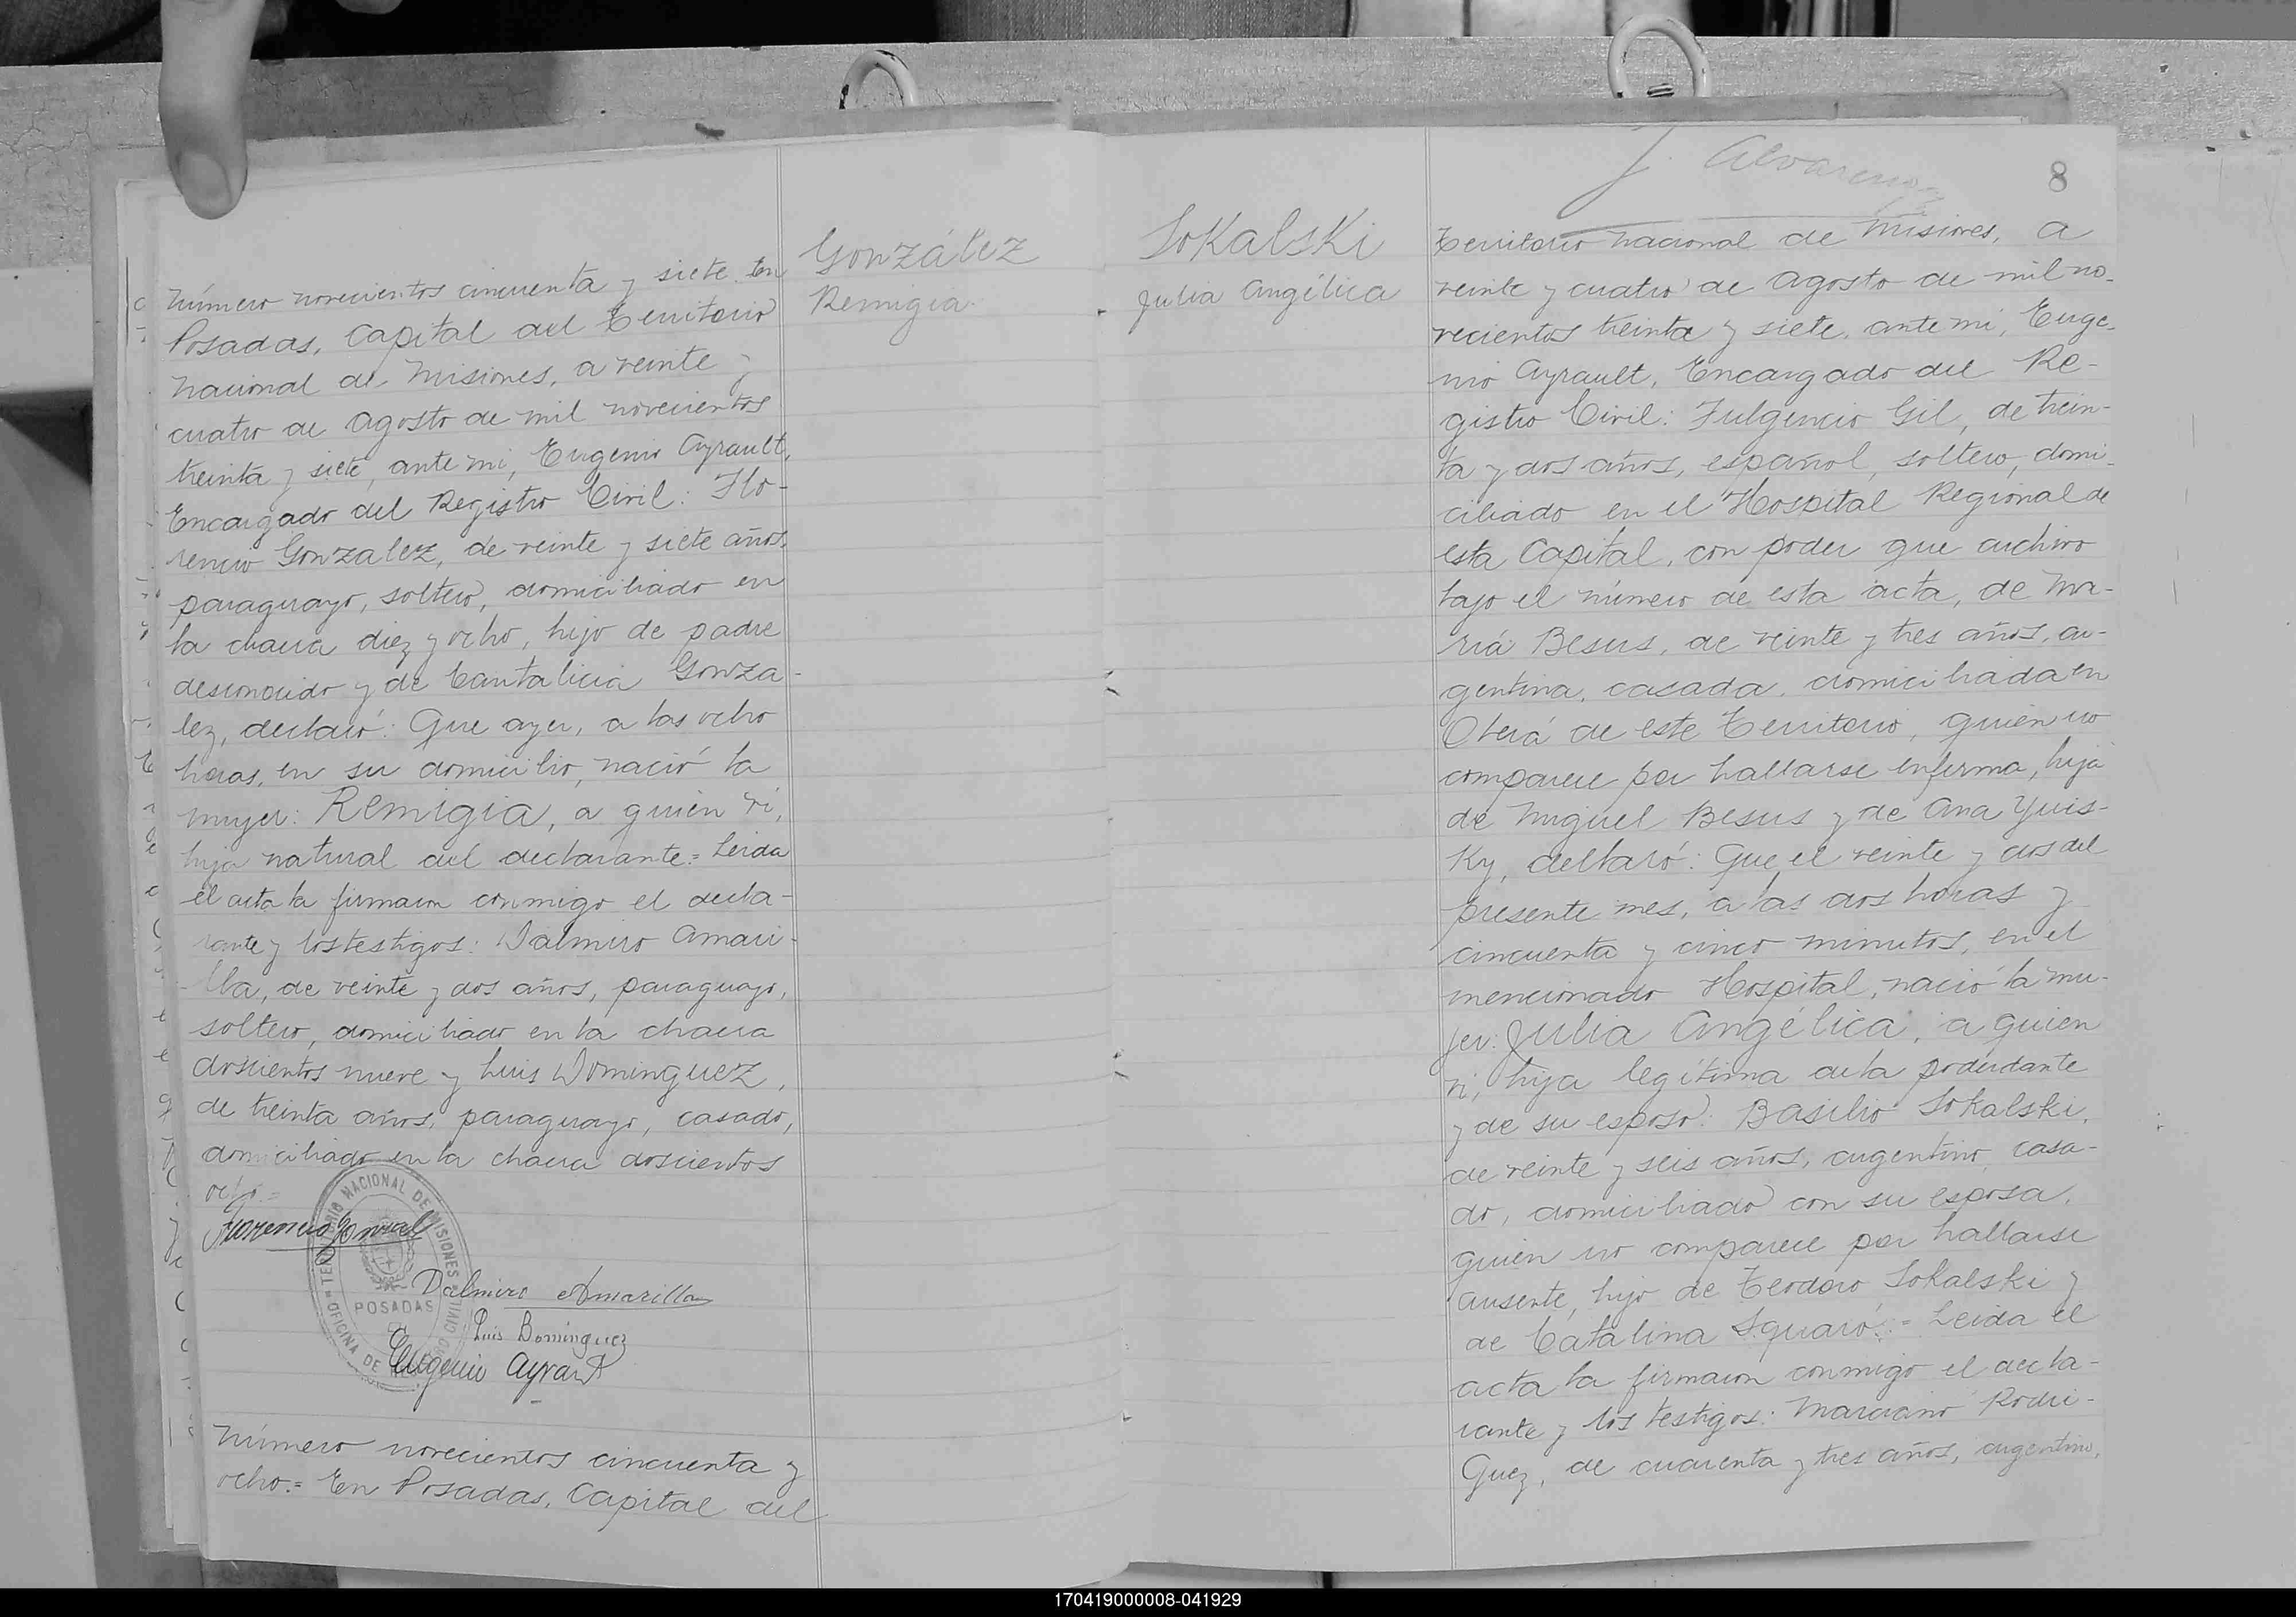 González
Remigia
número novecientos cincuenta y siete. En
Posadas, Capital del Territorio
Nacional de Misiones, a veinte y
cuatro de Agosto de mil novecientos
treinta y siete, ante mi, Eugenio Ayrault,
Encargado del Registro Civil: Flo-
rencio Gonzalez, de veinte y siete años,
paraguayo, soltero, domiciliado en
la chacra diez y ocho, hijo de padre
desconocido y de Cantalicia Gonza-
lez, declaró: Que ayer, a las ocho
horas, en su domicilio, nació la
mujer: Remigia, a quién vi,
hija natural del declarante.= Leida
el acta la firmaron conmigo el decla-
rante y los testigos: Dalmiro Amari-
lla, de veinte y dos años, paraguayo,
soltero, domiciliado en la chacra
doscientos nueve y Luis Dominguez,
de treinta años, paraguayo, casado,
domiciliado en la chacra doscientos
ocho.=
Florencio Gonzal
Dalmiro Amarilla
Luis Domínguez
Eugenio Ayrault
TERRITORIO NACIONAL DE MISIONES
OFICINA DE REGISTRO CIVIL
POSADAS
Número novecientos cincuenta y
ocho.= En Posadas, Capital del
J. Alvarenga
8
Sokalski
Julia Angélica
Territorio Nacional de Misiones, a
veinte y cuatro de Agosto de mil no-
vecientos treinta y siete, ante mi, Euge-
nio Ayrault, Encargado del Re-
gistro Civil: Fulgencio Gil, de trein-
ta y dos años, español, soltero, domi-
ciliado en el Hospital Regional de
esta Capital, con poder que archivo
bajo el número de esta acta, de Ma-
ría Besus, de veinte y tres años, ar-
gentina, casada, domiciliada en
Oberá de este Territorio, quién no
comparece por hallarse enferma, hija
de Miguel Besus y de Ana Yuis-
ky, declaró: Que el veinte y dos del
presente mes, a las dos horas y
cincuenta y cinco minutos, en el
mencionado Hospital, nació la mu-
jer: Julia Angélica, a quien
vi, hija legítima de la poderdante
y de su esposo: Basilio Sokalski,
de veinte y seis años, argentino, casa-
do, domiciliado con su esposa,
quién no comparece por hallarse
ausente, hijo de Teodoro Sokalski y
de Catalina Squaró.= Leida el
acta la firmaron conmigo el decla-
rante y los testigos: Marciano Rodri-
guez, de cuarenta y tres años, argentino,
170419000008-041929